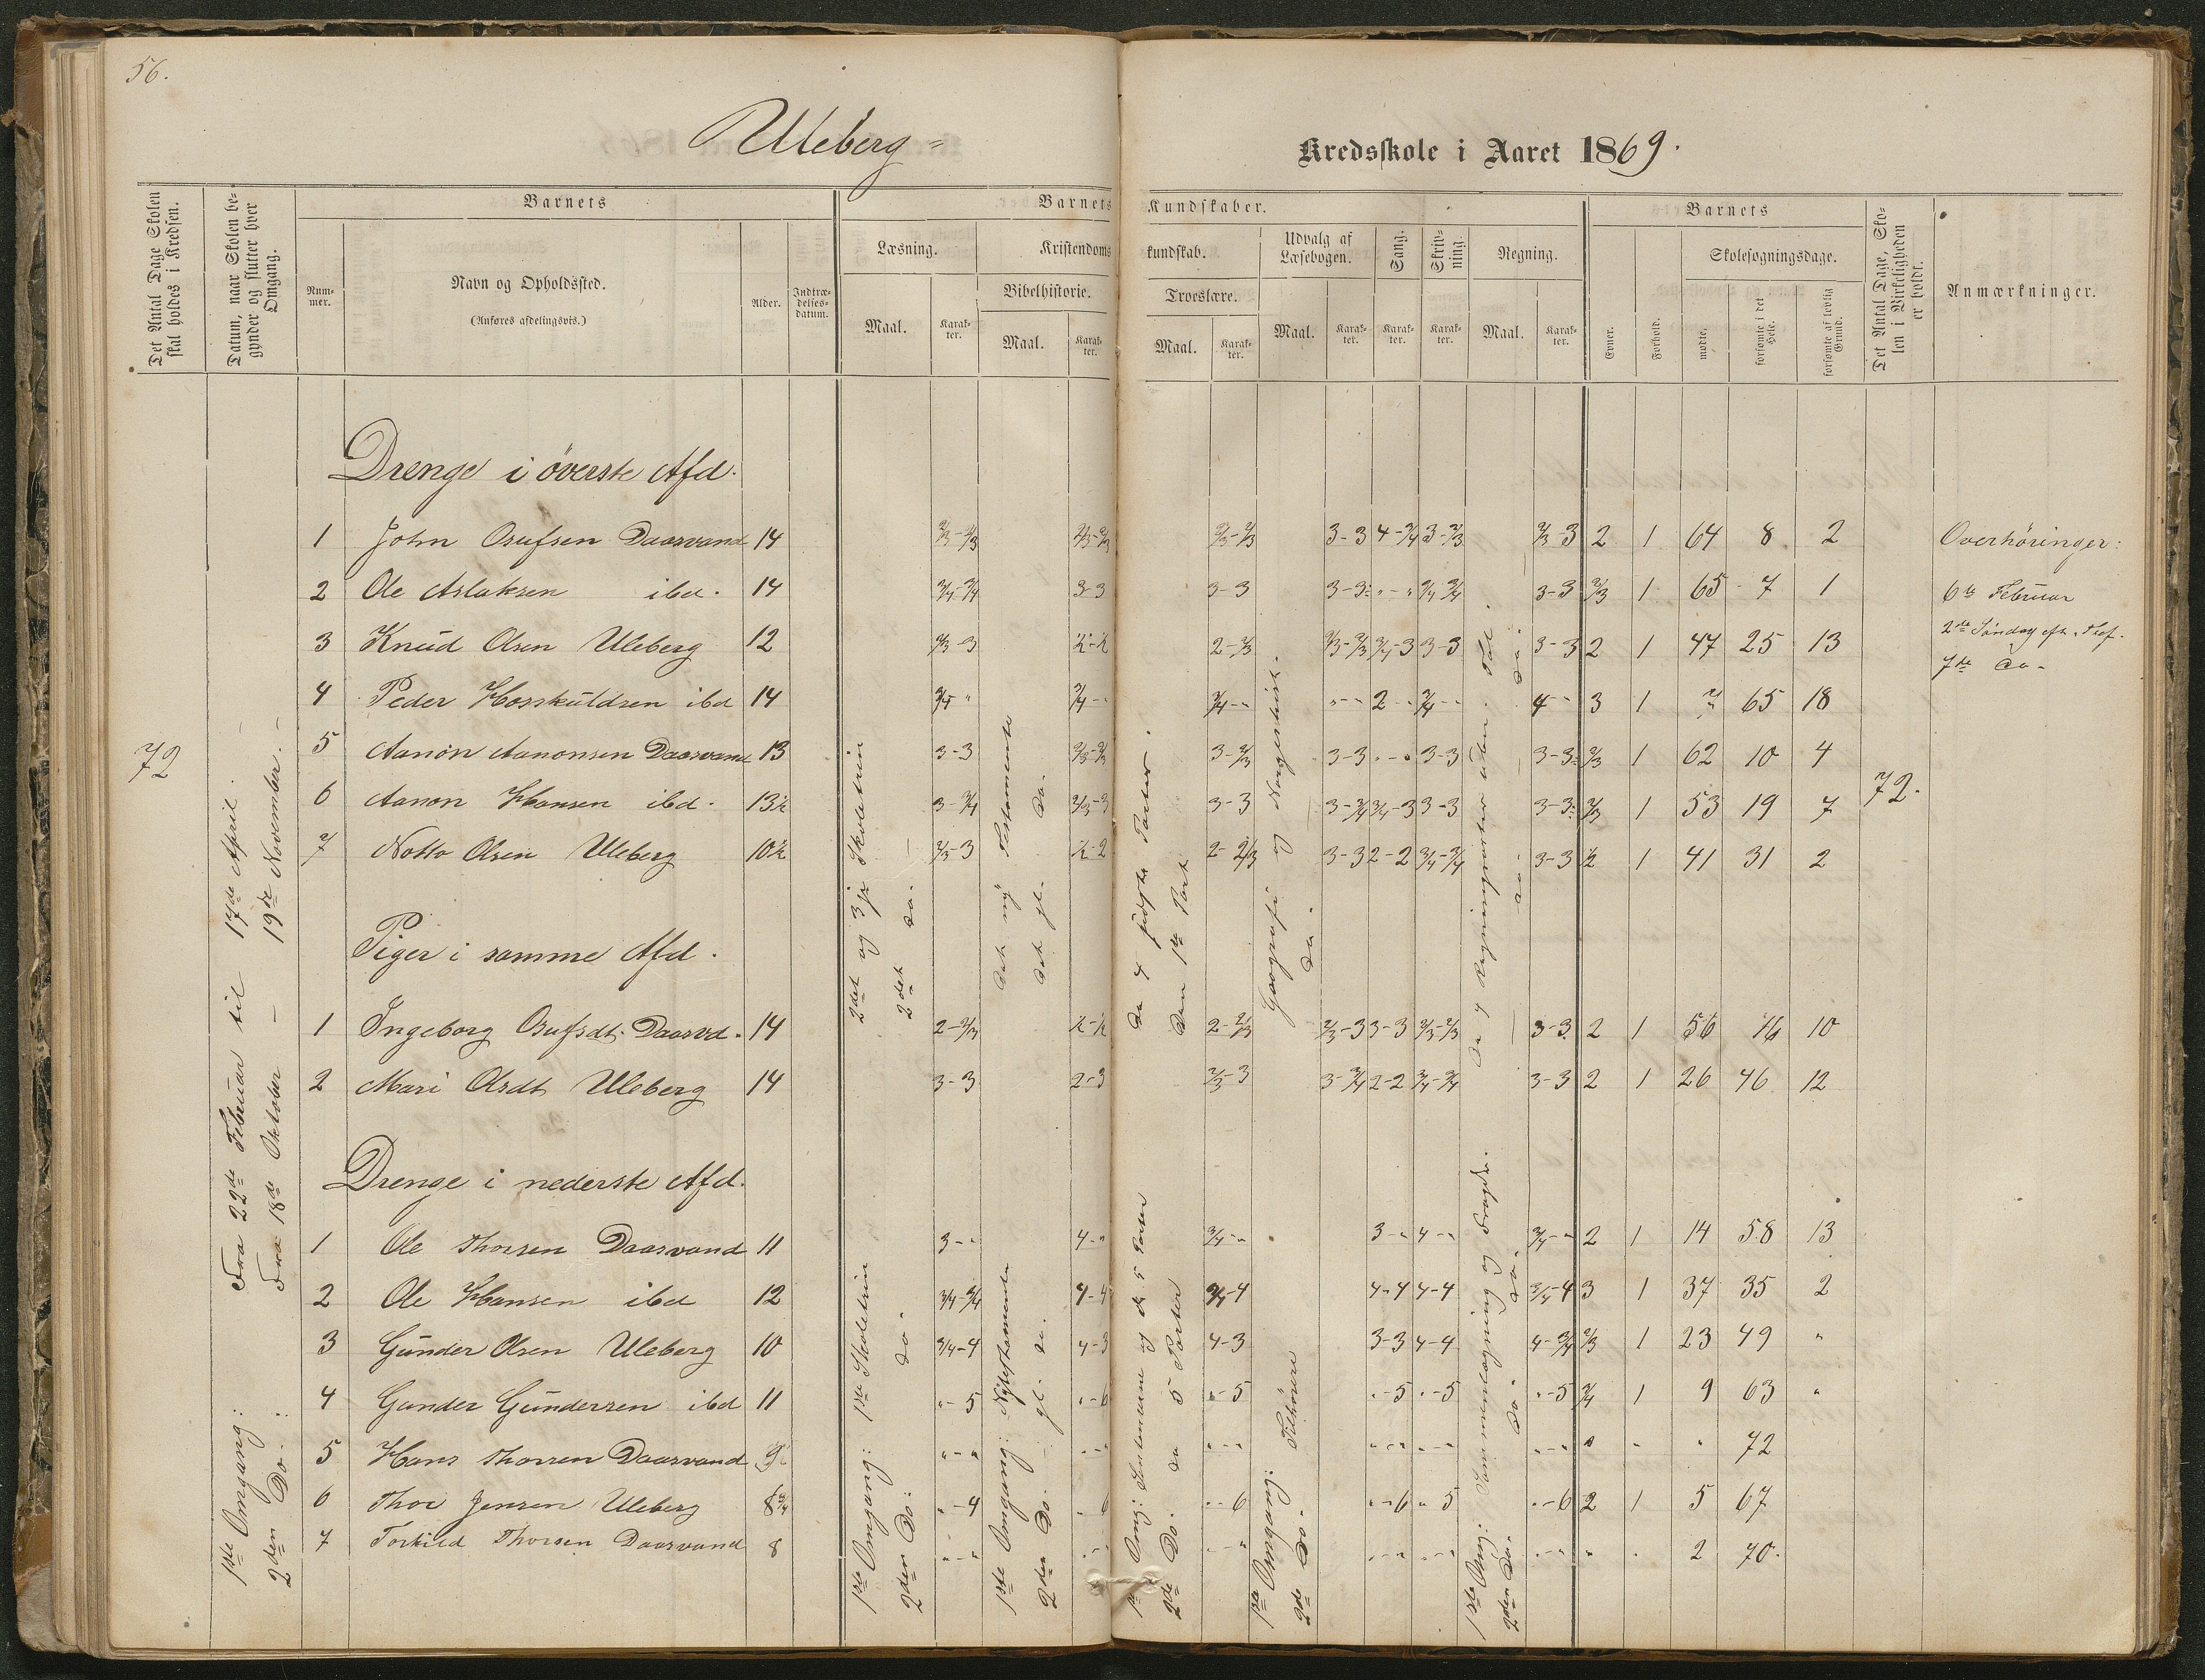 56.
Uleberg =
Kredsskole i Aaret 1869.
Det Antal Dage Skolen skal holdes i Kredsen.
Datum, naar Skolen begynder og slutter hver Omgang.
Barnets
Num-
mer.
Navn og Opholdssted.
(Anføres afdelingsvis.)
Alder.
Indtræ-
delses-
datum.
Barnets Kundskaber.
Læsning.
Maal.
Karak-
ter.
Kristendomskundskab.
Bibelhistorie.
Maal.
Karak-
ter.
Troeslære.
Maal.
Karak-
ter.
Udvalg af
Læsebogen.
Maal.
Karak-
ter.
Sang.
Karak-
ter.
Skriv-
ning.
Karak-
ter.
Regning.
Maal.
Karak-
ter.
Barnets
Evner.
Forhold.
Skolesøgningsdage.
mødte.
forsømte i det Hele.
forsømte af lovlig Grund.
Det Antal Dage, Sko-
len i Virkeligheden
er holdt.
Anmærkninger.
72
1ste Omgang: Fra 22de Februar til 17de April.
2den Do: Fra 18de Oktober - 19de November.
Drenge i överste Afd.
1 John Osufsen Daasvand 14 2/3-2/3 2/3-2/3 2/3-2/3 3-3 4-3/4 3-2/3 2/3 3 2 1 64 8 2
2 Ole Aslaksen ibd. 14 3/4-3/4 3-3 3-3 3-3 "-" 3/4 3/4 3-3 2/3 1 65 7 1
3 Knud Olsen Uleberg 12 2/3-3 ½-½ 2-2/3 2/3-2/3 3/4-3 3-3 3-3 2 1 47 25 13
4 Peder Hosskuldsen ibd 14 3/4 " 3/4-" 3/4-" "-" 2-" 3/4-" 4-" 3 1 7 65 18
5 Aanon Aanonsen Daasvand 13 3-3 2/3-2/3 3-2/3 3-3 "-" 3-3 3-3 2/3 1 62 10 4
6 Aanon Hansen ibd. 13½ 3-3/4 2/3-3 3-3 3-3/4 3/4-3 3-3 3-3 2/3 1 53 19 7
7 Notto Olsen Uleberg 10½ 2/3-3 ½-2 2-2/3 3-3 2-2 3/4-3/4 3-3 ½ 1 41 31 2
72.
Piger i samme Afd.
1 Ingeborg Osufsdt. Daasvd. 14 2-2/3 ½-½ 2-2/3 2/3-3 3-3 2/3-2/3 3-3 2 1 56 16 10
2 Mari Olsdt Uleberg 14 3-3 2-3 2/3-3 3-3/4 2-2 3/4-3/4 3-3 2 1 26 46 12
Drenge i nederste Afd.
1 Ole Thorsen Daasvand 11 3-" 4-" 3/4-" 3-" 4-" 3/4-" 2 1 14 58 13
2 Ole Hansen ibd 12 3/4-3/4 4-4 3/4-4 4-4 4-4 3/4-4 3 1 37 35 2
3 Gunder Olsen Uleberg 10 3/4-4 4-3 4-3 3-3 4-4 4-3/4 2/3 1 23 49 "
4 Gunder Gundersen ibd 11 "-5 "-6 "-5 "-5 "-5 "-5 3/4 1 9 63 "
5 Hans Thorsen Daasvand "-" "-" "-" "-" "-" "-" " " " 72
6 Thor Jensen Uleberg 8¾ "-4 " 6 "-6 "-6 "-5 "-6 2 1 5 67
7 Torkild Thorsen Daasvand 8 "-" "-" "-" "-" "-" "-" " " 2 70.
2det og 3je Skoletrin
2det do.
1ste Omgang: 1ste Skoletrin
2den Do: do.
Det ny Testamente
Det gl. Do.
1ste Omgang: Nytestamente
2den Do. gl. do.
De 4 sidste Parter.
Den 1ste Part
1ste Omg: og de 5 Parter
2de Do. do 5 Parter
Geografi og Norgeshist.
Do.
1ste Omgang: Tilhörere
2de Do.
De 4 Regningsarter uden
do.
1ste Omg: Sammenlægning og Fradr.
2den Do. do. do.
Overhöringer:
6te Februar
2de Söndag eft.
7de do-